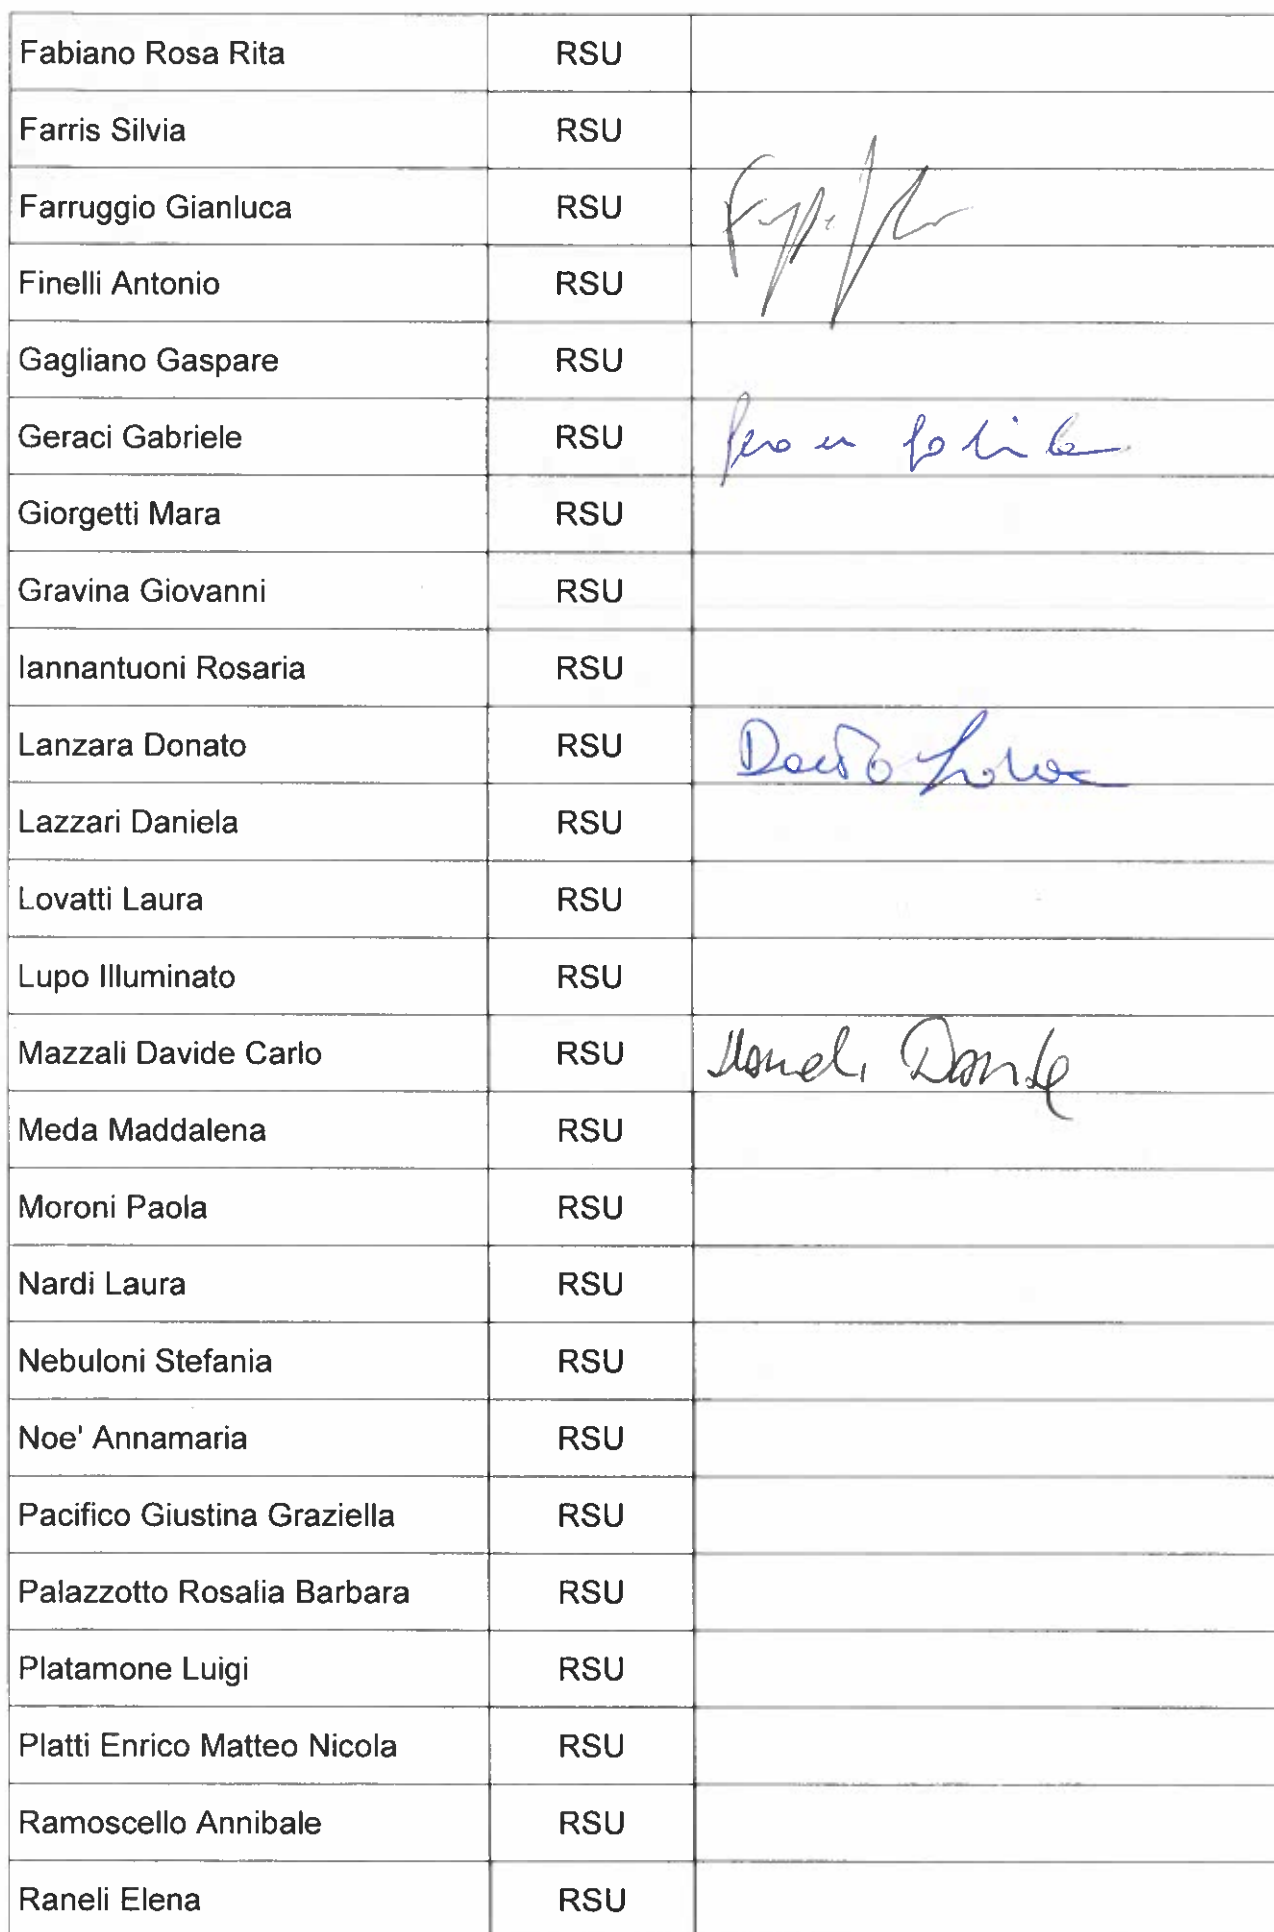 Fabiano Rosa Rita RSU
Farris Silvia RSU
Farruggio Gianluca RSU
Finelli Antonio RSU
Gagliano Gaspare RSU
Geraci Gabriele RSU
Giorgetti Mara RSU
Gravina Giovanni RSU
Iannantuoni Rosaria RSU
Lanzara Donato RSU
Lazzari Daniela RSU
Lovatti Laura RSU
Lupo Illuminato RSU
Mazzali Davide Carlo RSU
Meda Maddalena RSU
Moroni Paola RSU
Nardi Laura RSU
Nebuloni Stefania RSU
Noe' Annamaria RSU
Pacifico Giustina Graziella RSU
Palazzotto Rosalia Barbara RSU
Platamone Luigi RSU
Platti Enrico Matteo Nicola RSU
Ramoscello Annibale RSU
Raneli Elena RSU